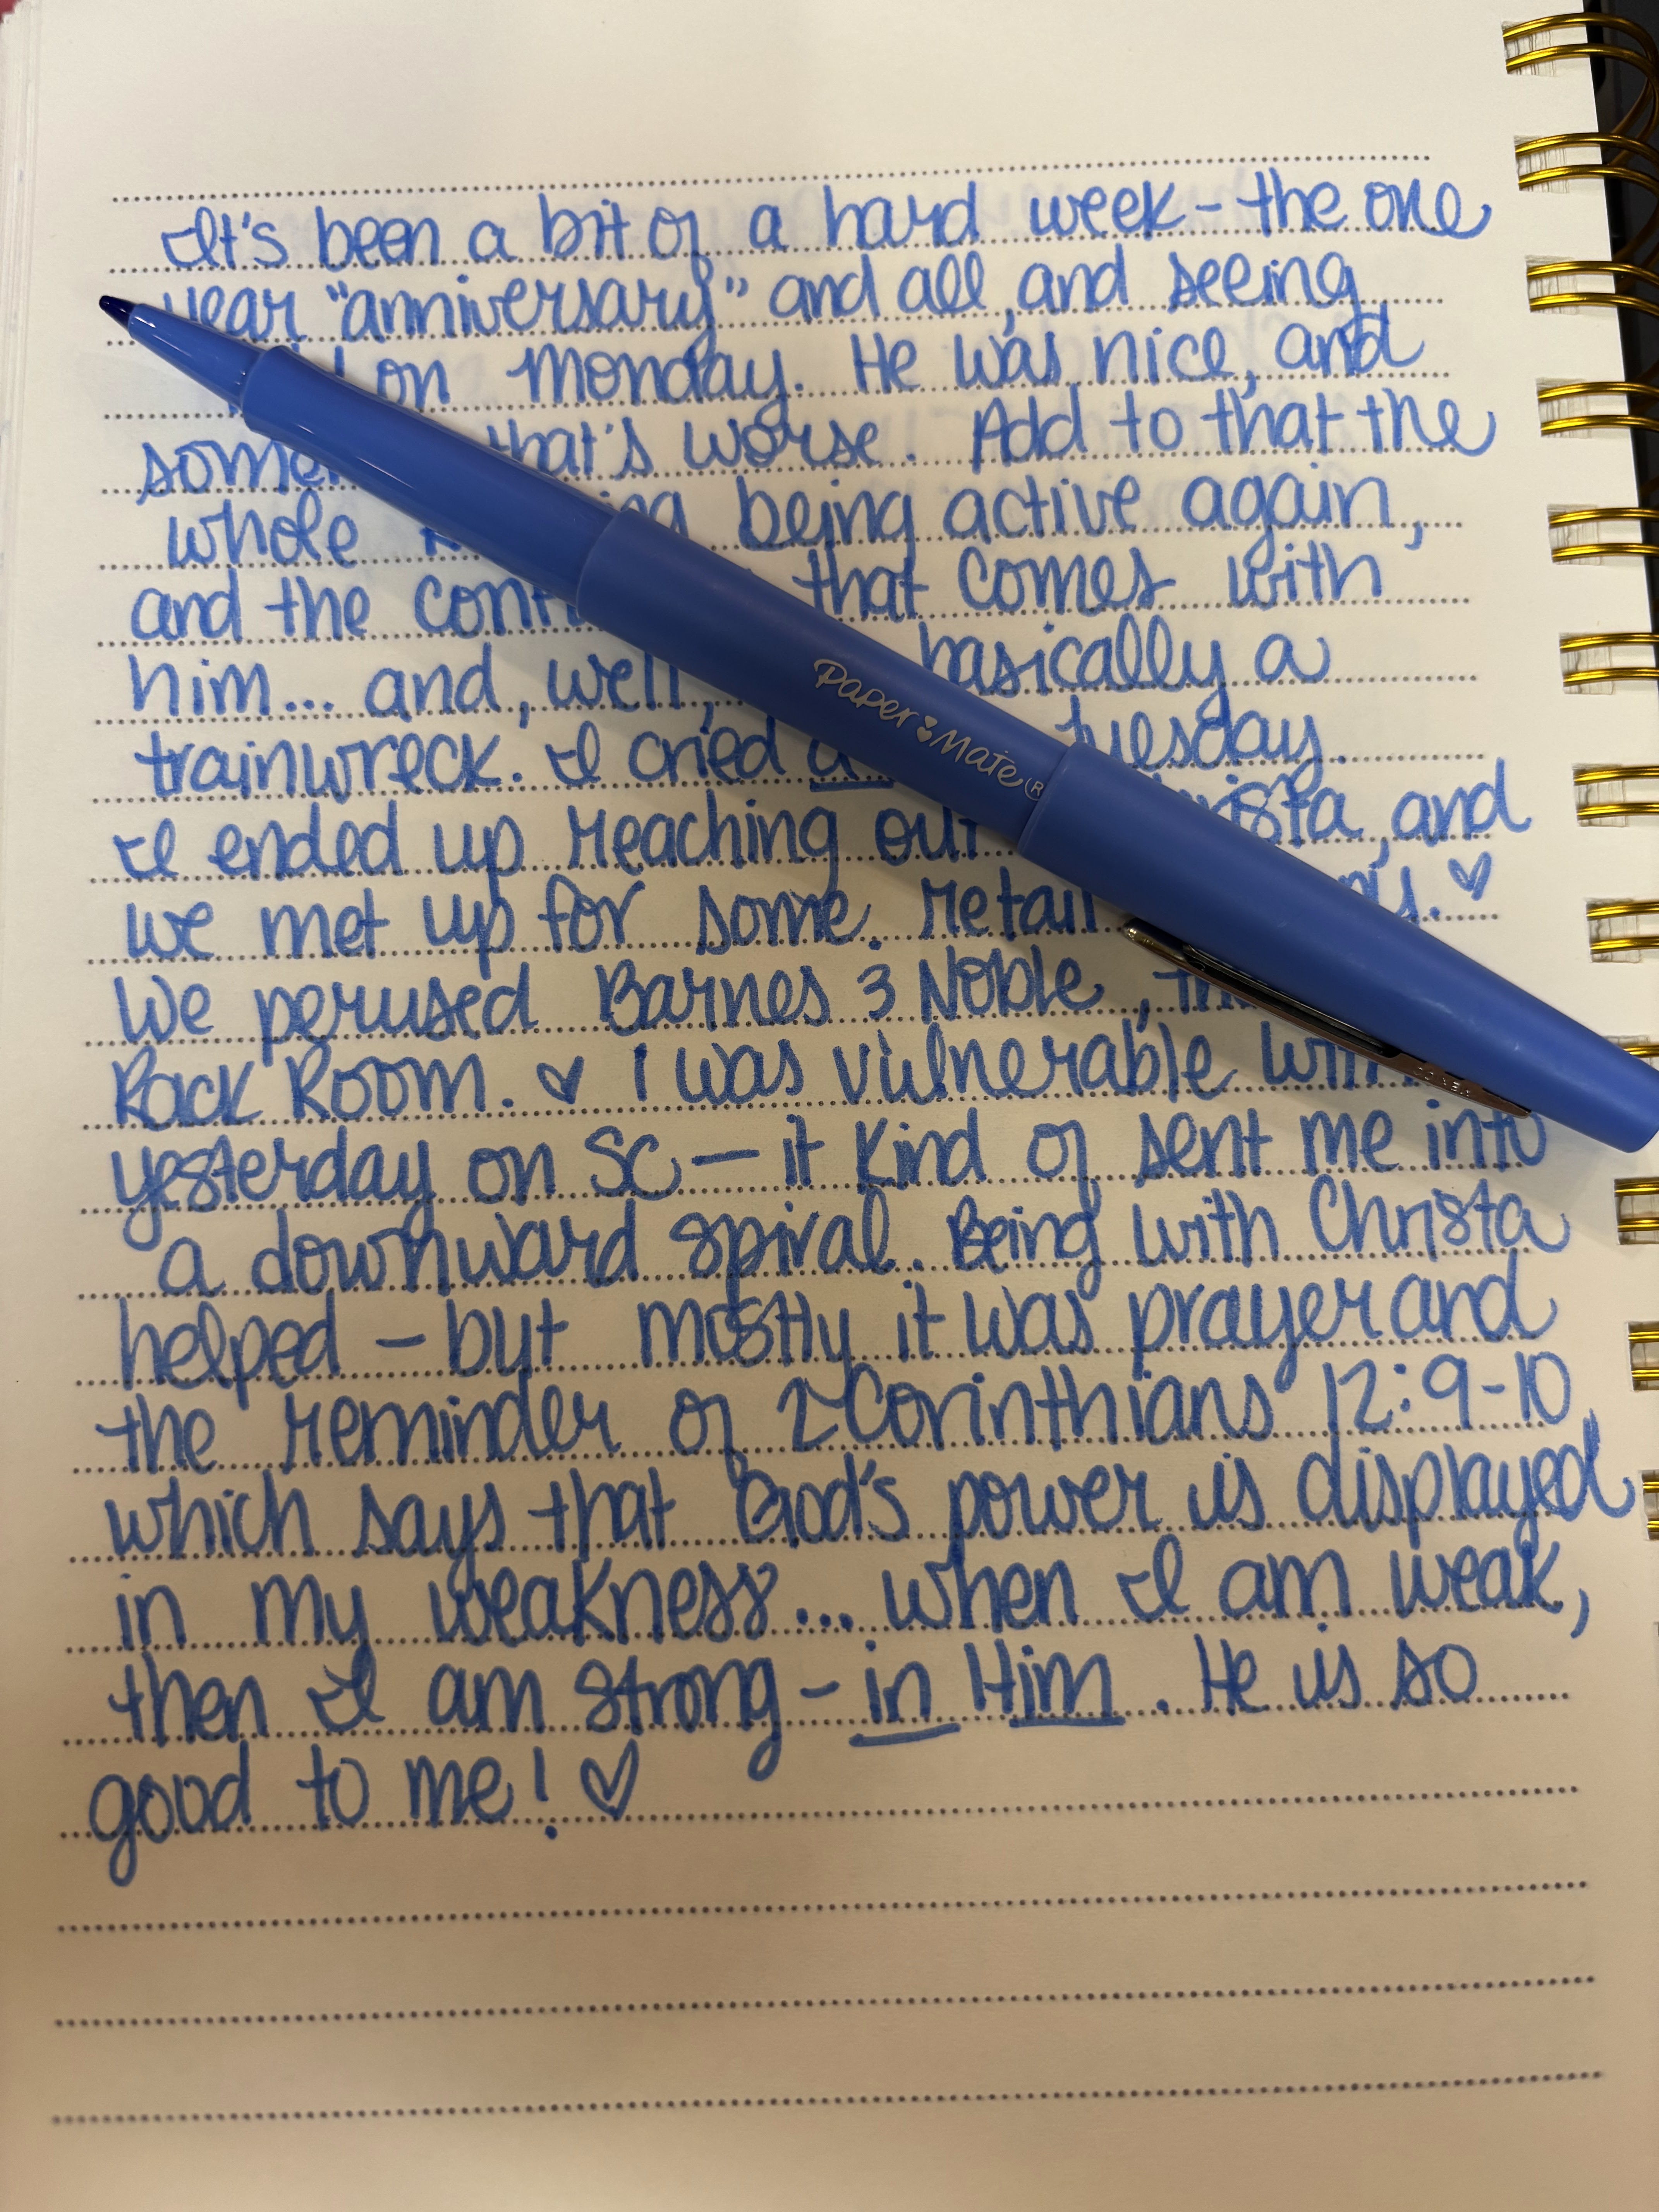 It's been a bit of a hard week - the one
year "anniversary" and all, and seeing
on Monday. He was nice, and
that's worse. Add to that the
whole being active again,
and the that comes with
him... and, well, basically a
trainwreck. I cried Tuesday.
I ended up reaching out and
we met up for some. retail ♡
We perused Barnes & Noble,
Back Room. ♡ I was vulnerable
yesterday on SC — it kind of sent me into
a downward spiral. Being with Christa
helped - but mostly it was prayer and
the reminder of 2 Corinthians 12:9-10
which says that God's power is displayed
in my weakness... when I am weak,
then I am strong - in Him. He is so
good to me! ♡
Paper Mate®